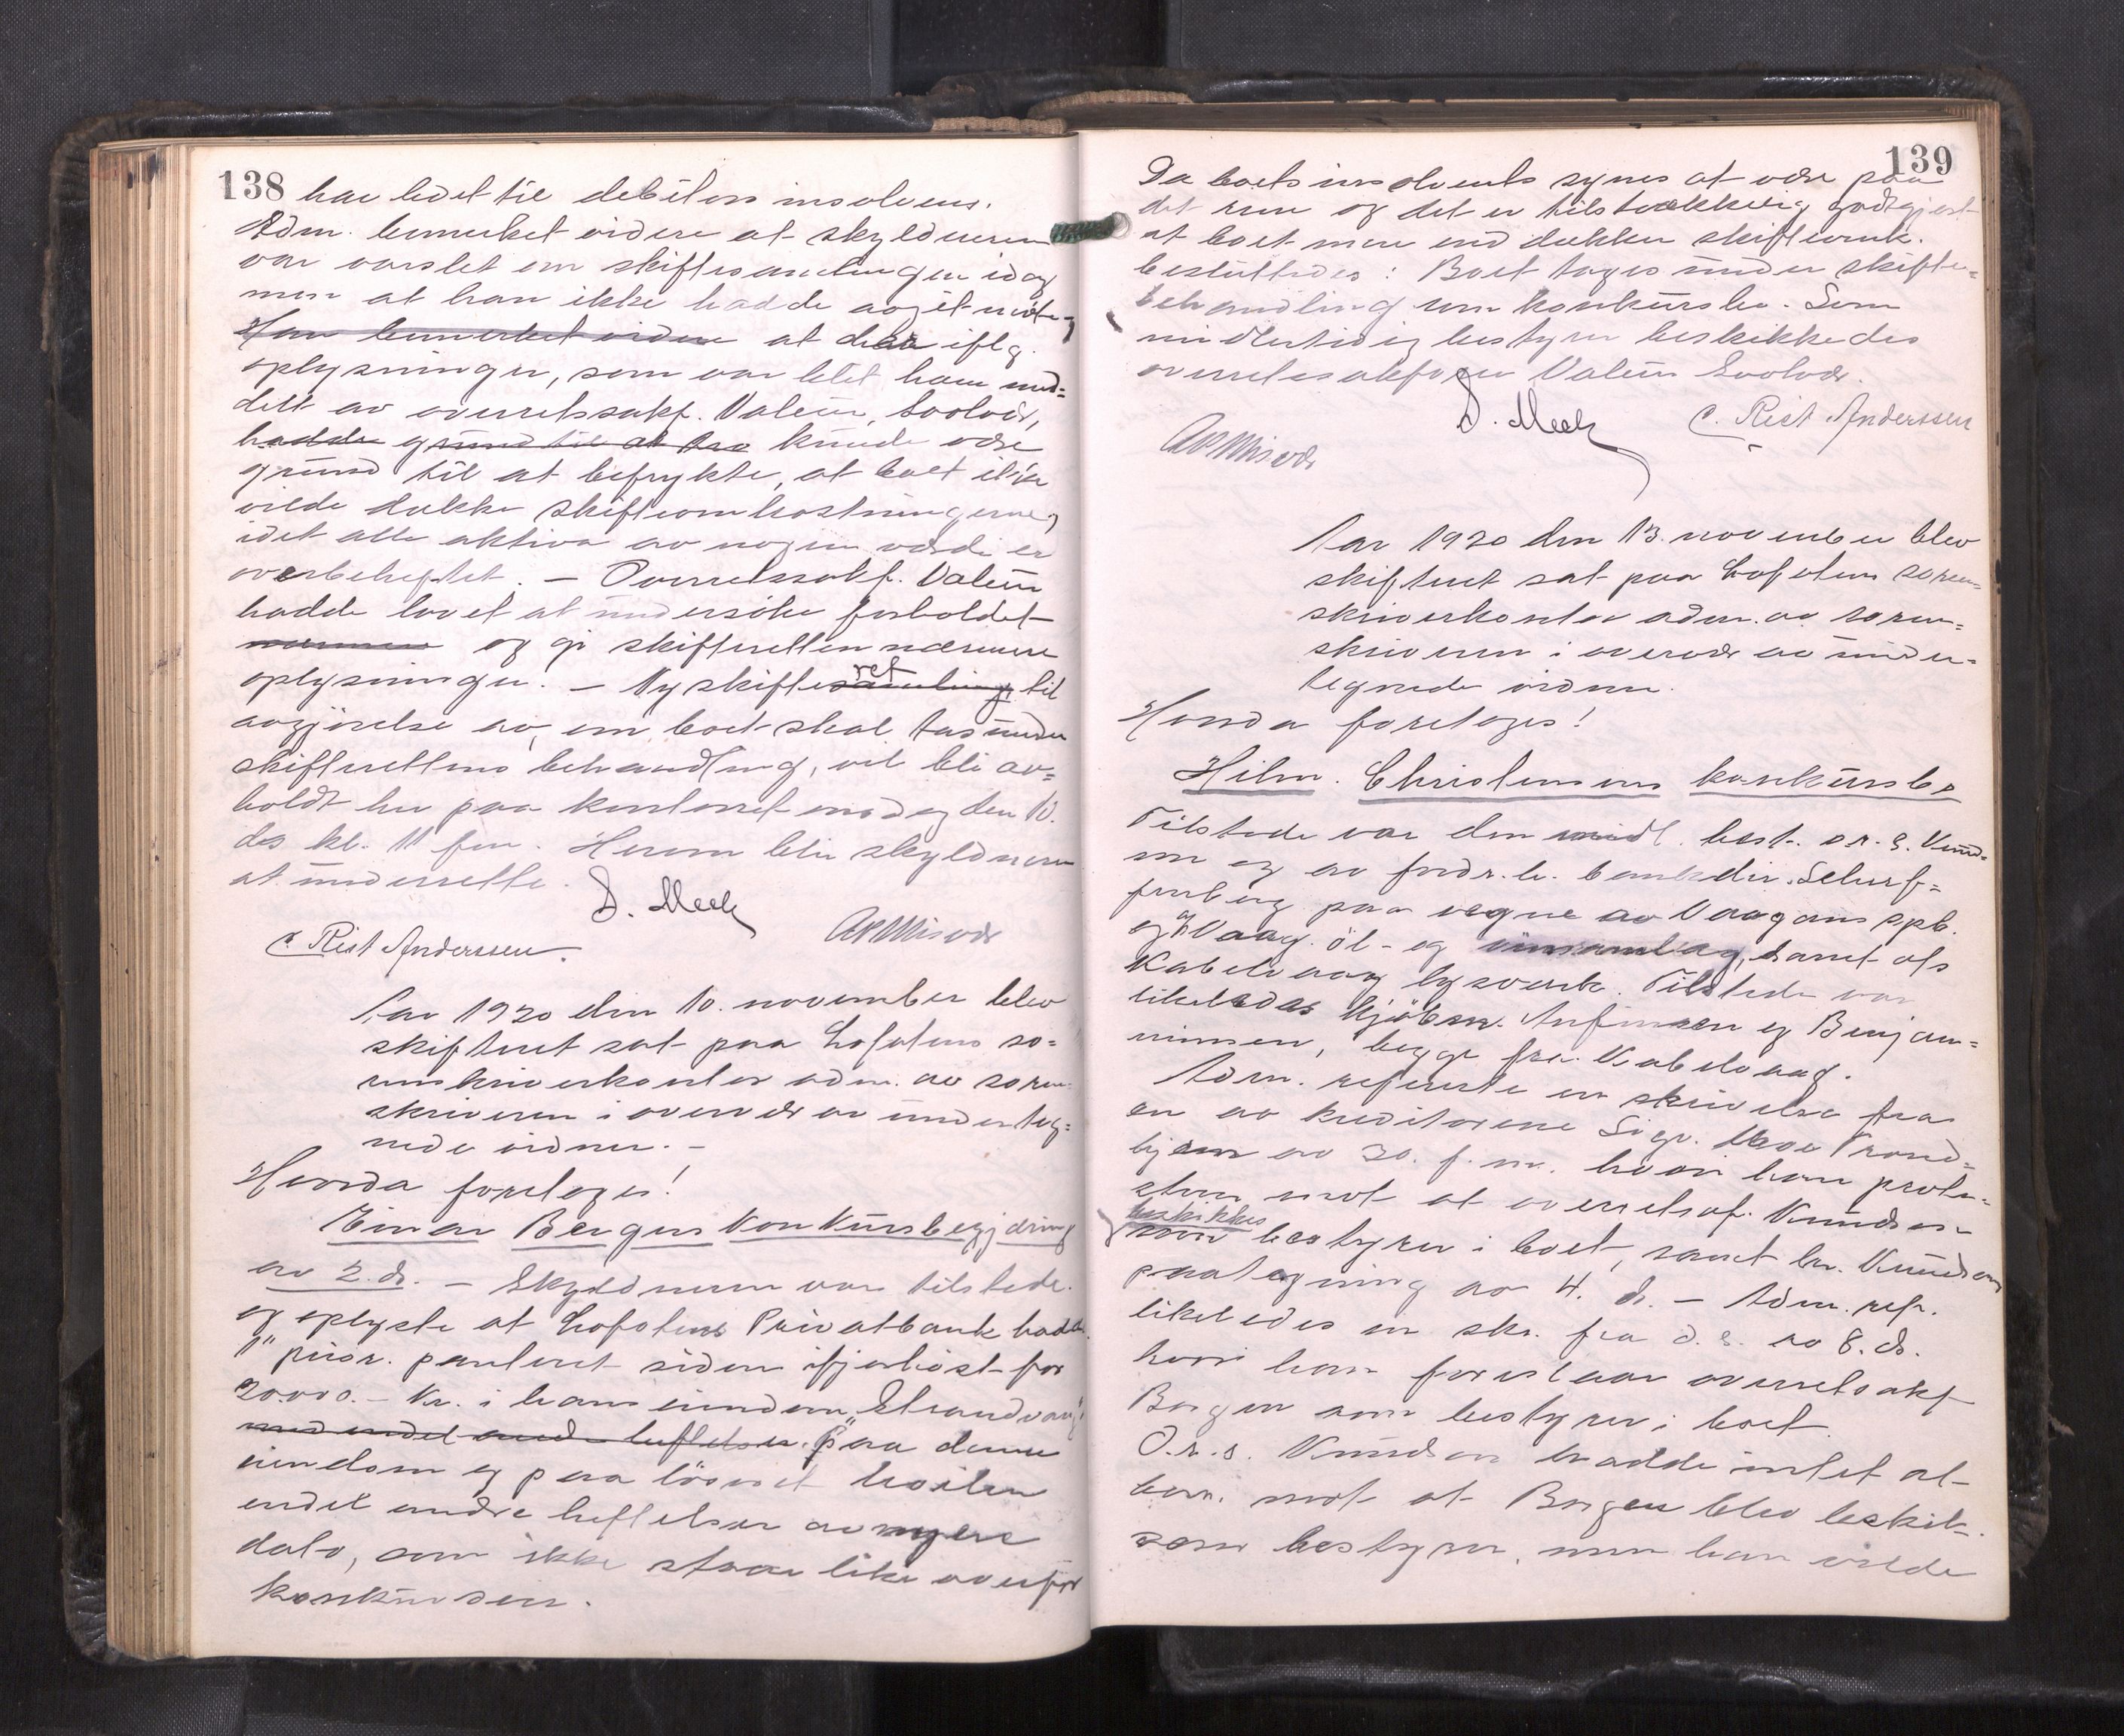 138
har ledet til debitors insolvens.
Adm. bemerket videre at skyldneren
var varslet om skiftesamlingen idag
men at han ikke hadde avgit møte,
Han bemerket videre at der iflg.
oplysninger, som var blit ham med=
delt av overretssakf. Valeur, Svolvær,
hadde grund til at tro kunde være
grund til at befrykte, at boet ikke
vilde dække skifteomkostningerne,
idet alle aktiva av nogen værdi er
overbeheftet. – Overretssakf. Valeur
hadde lovet at undersøke forholdet
nærmere og gi skifteretten nærmere
oplysninger. – Ny skiftesamling ret til
avgjørelse av, om boet skal tas under
skifterettens behandling, vil bli av=
holdt her paa kontoret onsdag den 10.
ds kl. 11 fm. Herom blir skyldneren
at underrette.
D. Meek
APMisvær
C. Rist Anderssen.
Aar 1920 den 10. november blev
skifteret sat paa Lofotens so=
renskriverkontor adm. av soren
skriveren i overvær av underteg=
nede vidner. –
Hvorda foretoges!
Einar Bergers konkursbegjæring
av 2. ds. – Skyldneren var tilstede.
og oplyste at Lofotens Privatbank hadde
1" prior. panteret siden ifjorhøst for
20.000.- Kr. i hans eiendom "Strandvang"
med endel andre heftelser. Paa denne
eiendom og paa løsøret hviler
endel andre heftelser av nyere
dato, som ikke staar like overfor
konkursen.
139
Da boets insolvents synes at være paa
det rene og det er tilstrækkelig godtgjort
at boet mere end dækker skifteomk.
besluttedes: Boet tages under skifte=
behandling som konkursbo. Som
midlertidig bestyrer beskikkedes
overretssakfører Valeur Svolvær.
D. Meek
C. Rist Anderssen
APMisvær
Aar 1920 den 13. november blev
skifteret sat paa Lofotens soren=
skriverkontor adm. av soren=
skriveren i overvær av under=
tegnede vidner.
Hvorda foretoges!
Hilm. Christensens konkursbo
Tilstede var den midl. best. o.r.s. Knud=
sen og av fordr.h. bankdir. Scharf=
fenberg paa vegne av Vaagans spb.
og Vaag. øl- og vinsamlag, samt ofs
Kabelvaag lysverk. Tilstede var
likeledes kjøbm. Anfinsen og Benjam=
minsen, begge fra Kabelvaag.
Adm. refererte en skrivelse fra
en av kreditorene Sigv. Moe Trond=
hjem av 30. f.m. hvori han prote=
sterer mot at overretssf. Knudsen
beskikkes
som bestyrer i boet, samt hr. Knudsens
paategning av 4. ds. – Adm. ref.
likeledes en skr. fra d.s. av 8. ds.
hvori han foreslaar overretssakf
Borgen som bestyrer i boet.
O.r.s. Knudsen hadde intet at
bem. mot at Borgen blev beskik.
som bestyrer, men han vilde